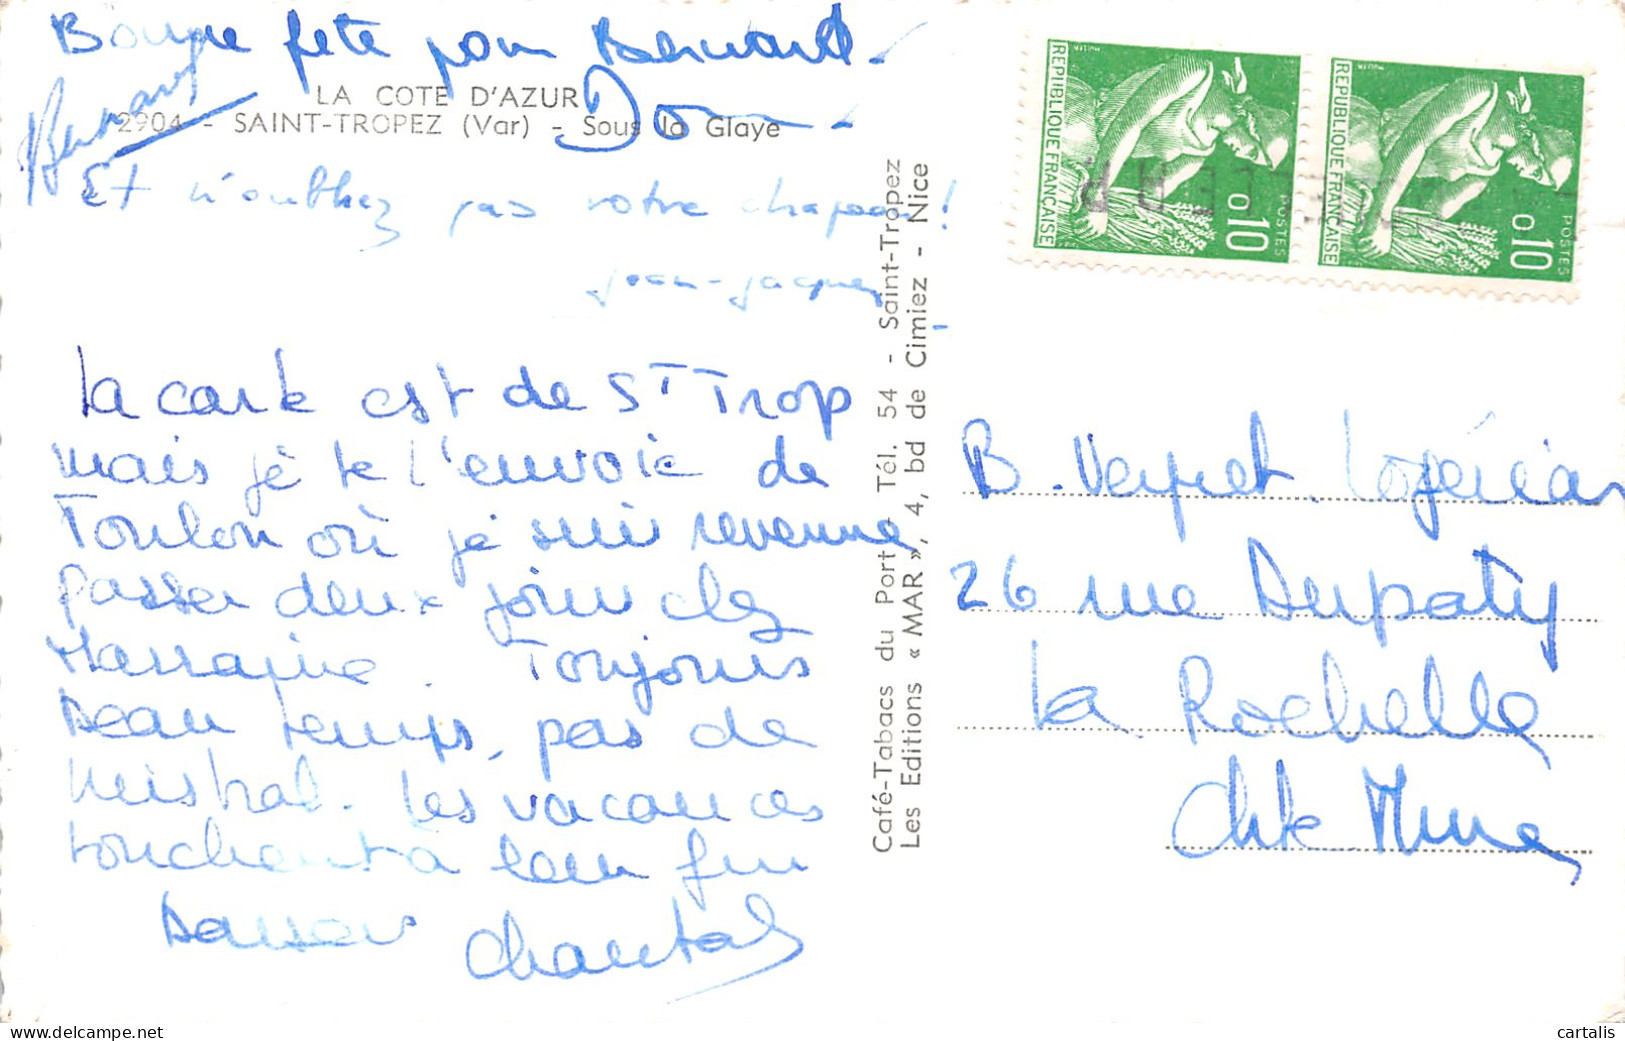 Bonne fête pour Bernard.
Dom
Bernard
LA COTE D'AZUR
2904 - SAINT-TROPEZ (Var) - Sous la Glaye
Et n'oubliez pas votre chapeau !
Jean-Jacques
La carte est de ST Trop
mais je te l'envoie de
Toulon où je suis revenue
passer deux jours chez
Marraine. Toujours
beau temps, pas de
mistral. Les vacances
touchent à leur fin
Baisers
Chantal
Café-Tabacs du Port - Tél. 54 - Saint-Tropez
Les Editions « MAR », 4, bd de Cimiez - Nice
REPUBLIQUE FRANÇAISE
MULLER
POSTES
0,10
REPUBLIQUE FRANÇAISE
MULLER
POSTES
0,10
B. Veyret.
26 rue Dupaty
La Rochelle
Chte Mme
cartalis